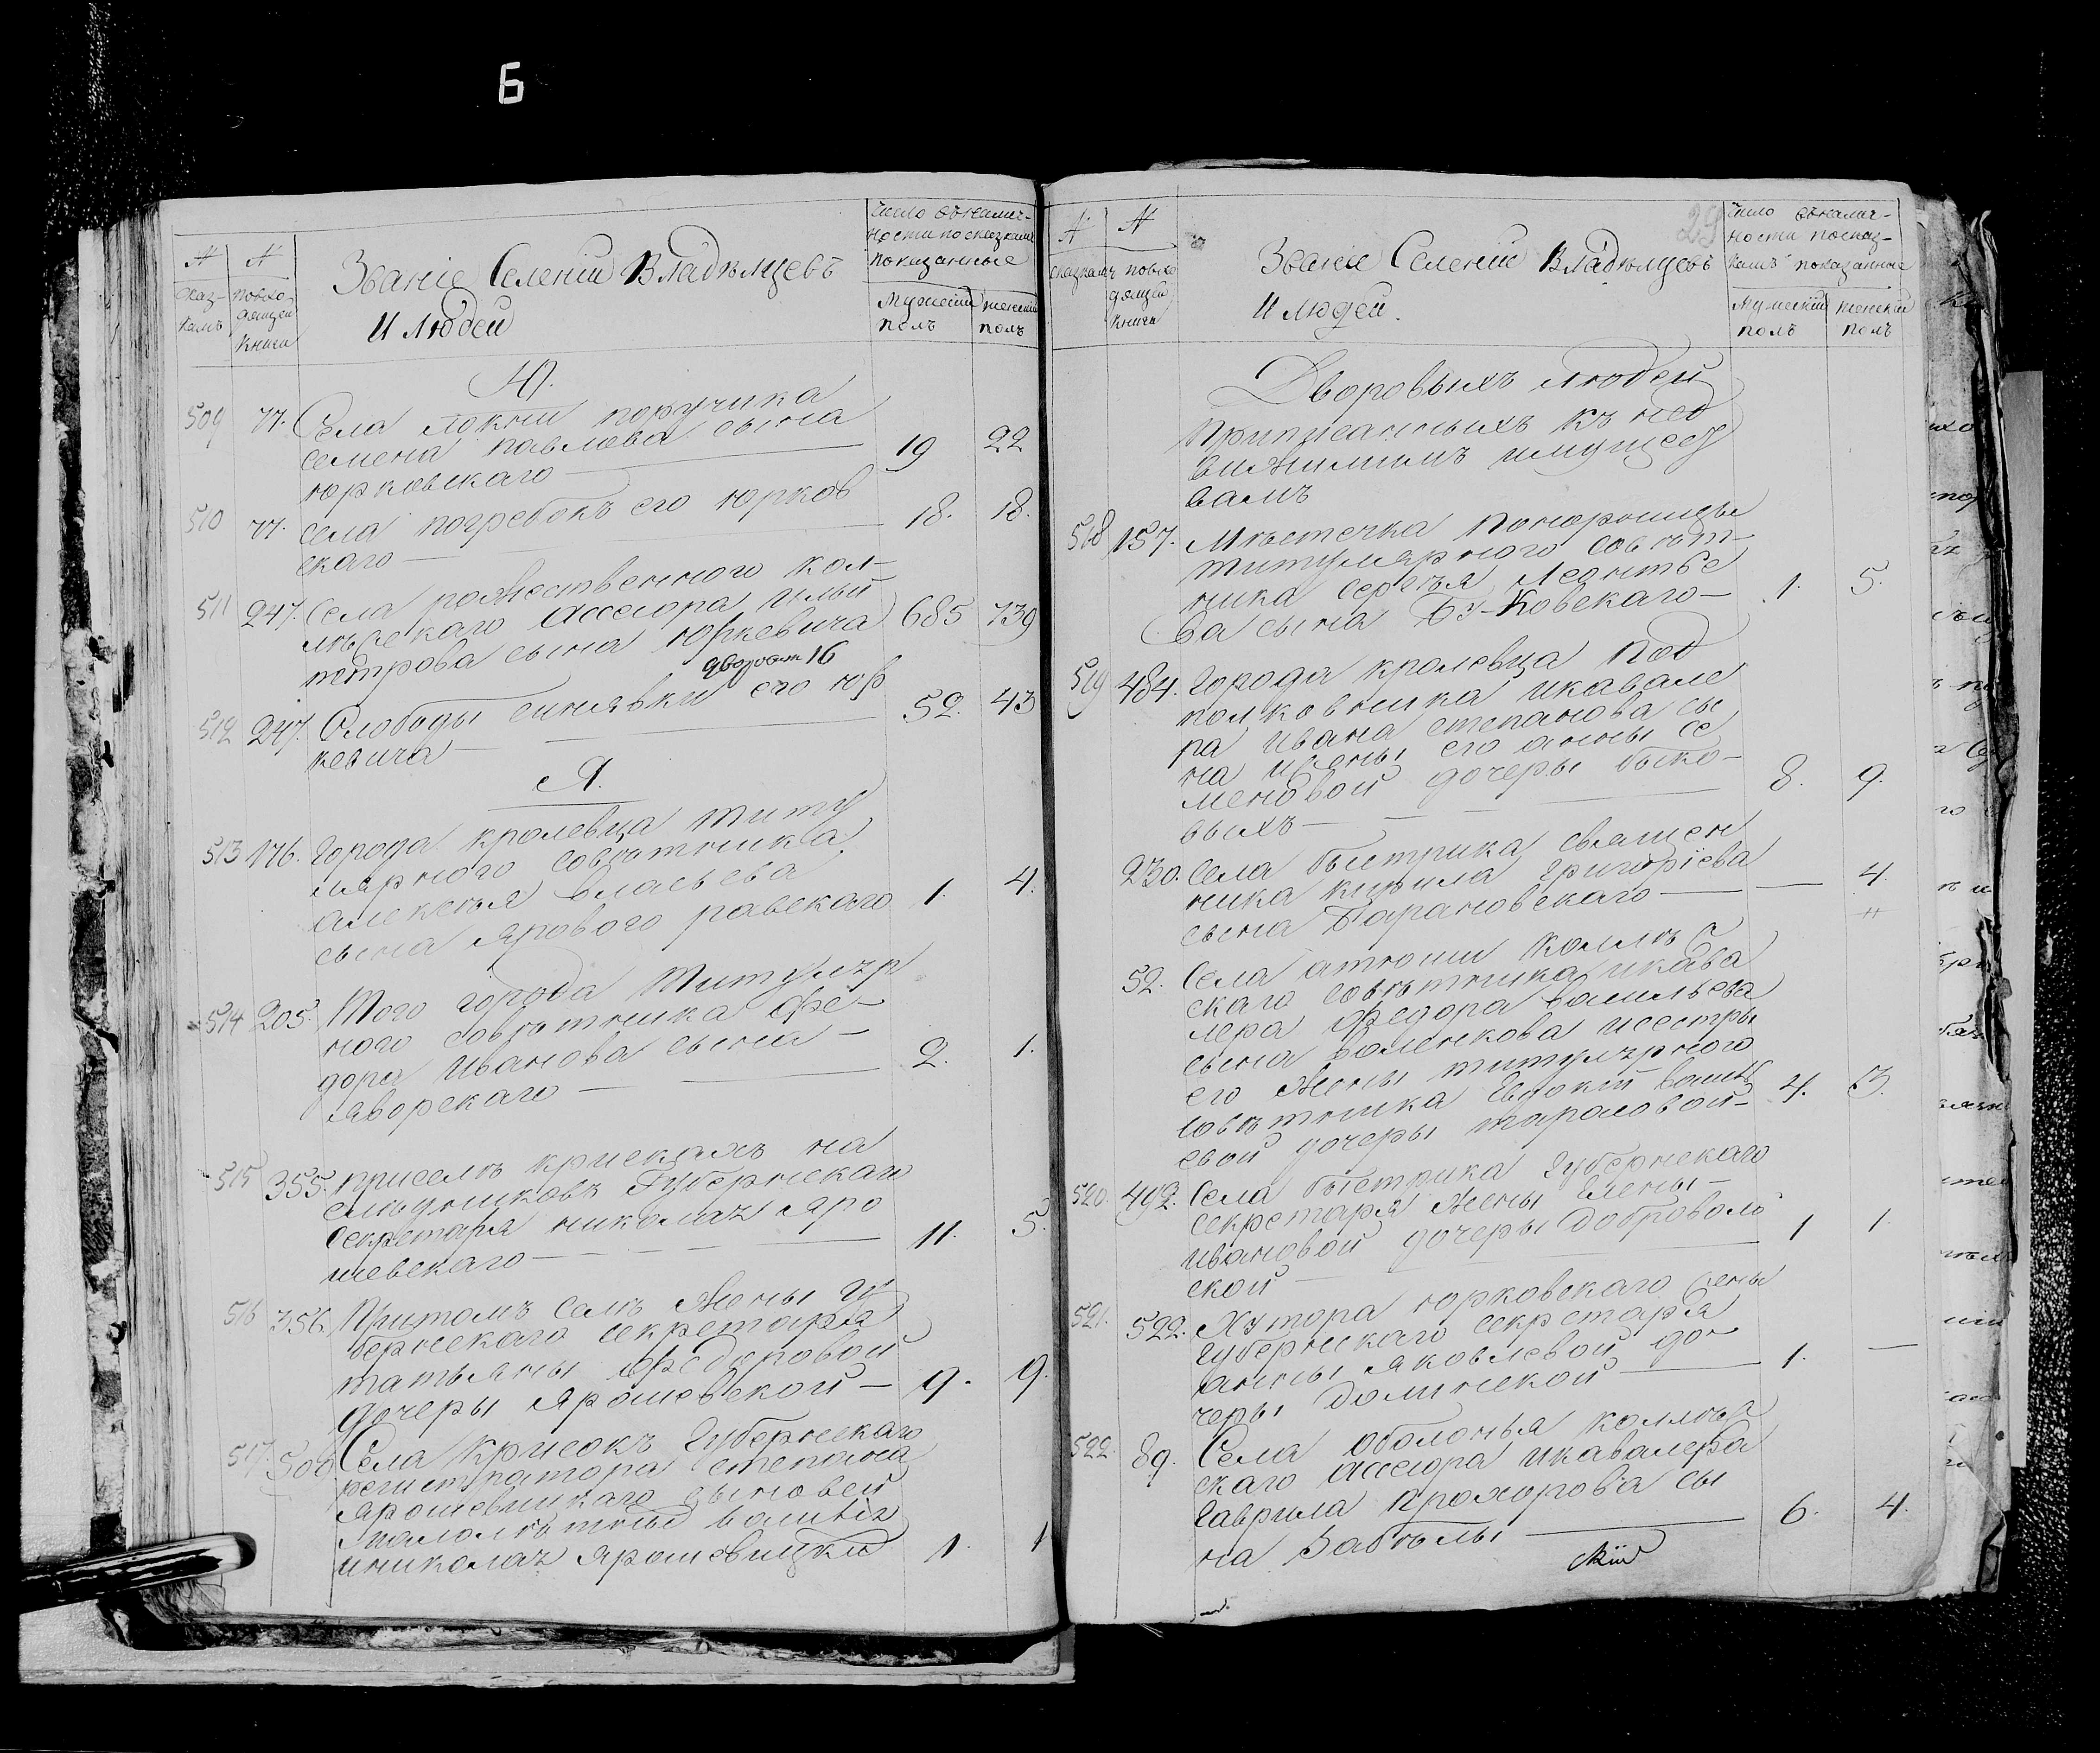 Б
№ сказкамъ
№ по входящей книги
Званіе Селеніи Владѣлцевъ
И Людей
Число въ наличности по сказкамъ показанные
Мужескій полъ
женскій полъ
Ю.
509 77. Села Локни поручика
Семена павлова сына
юрковскаго 19 22
510 77. села погребокъ его юрков
скаго 18. 18.
511 247. Села рождественного Кол-
лѣжскаго Ассесора Ильи
петрова сына юркевича 685 739
дворовыхъ 16
512 247. Слободы синявки его юр
кевича 52. 43
Я.
513 176. Города кролевца титу
лярного Совѣтника
алексѣя власьева
сына ярового равскаго 1. 4.
514 205. Того города Титуляр
ного совѣтника Фе-
дора Иванова сына
яворскаго 2. 1.
515 355. приселѣ крискахъ на
слѣдниковъ Губернскаго
Секретаря николая яро
шевскаго 11. 5.
516 356. Притомъ селѣ жены гу
бернскаго секретаря
татьяны Федоровой
дочеры ярошевской 9. 9.
517. 500 Села Крисокъ Губернскаго
регистратора степана
ярошевицкаго сыновей
малолѣтные василія
и николая ярошевицкіи 1. 1
29
№ сказкамъ
№ по входящей книги
Званіе Селеніи Владѣлцевъ
И людей.
Число въ наличности по сказкамъ показанные
Мужескій полъ
женскій полъ
Дворовыхъ людей
приписанныхъ къ нед
вижимимъ имущест
вамъ
518 157. Мѣстечка Понорницы
титулярного совѣт-
ника Сергѣя Леонтье
ва сына Бу-Ковскаго 1. 5.
519 484. Города кролевца Под
полковника и кавале
ра Ивана степанова сы
на и жены его анны Се
меновой дочеры быко-
выхъ 8. 9.
230. Села быстрика священ
ника кирила григорieва
сына Барановскаго — 4.
52. Села атюши коллѣж
скаго совѣтника и кава
лера Федора васильева
сына воленкова и сестры
его жены титулярного
совѣтника Евдокіи василь
евой дочеры тарасовой 4. 3.
520. 492. Села быстрика Губернскаго
секретаря жены Елены
Ивановой дочеры Доброволь
ской 1 1.
521. 522. Хутора юрковскаго жены
губернскаго секретаря
анны яковлевой до-
черы Долинской 1. —
522. 89. Села Оболонья коллѣж
скаго Ассесора и кавалера
гаврила Прохорова сы
на Забѣлы 6. 4.
скій